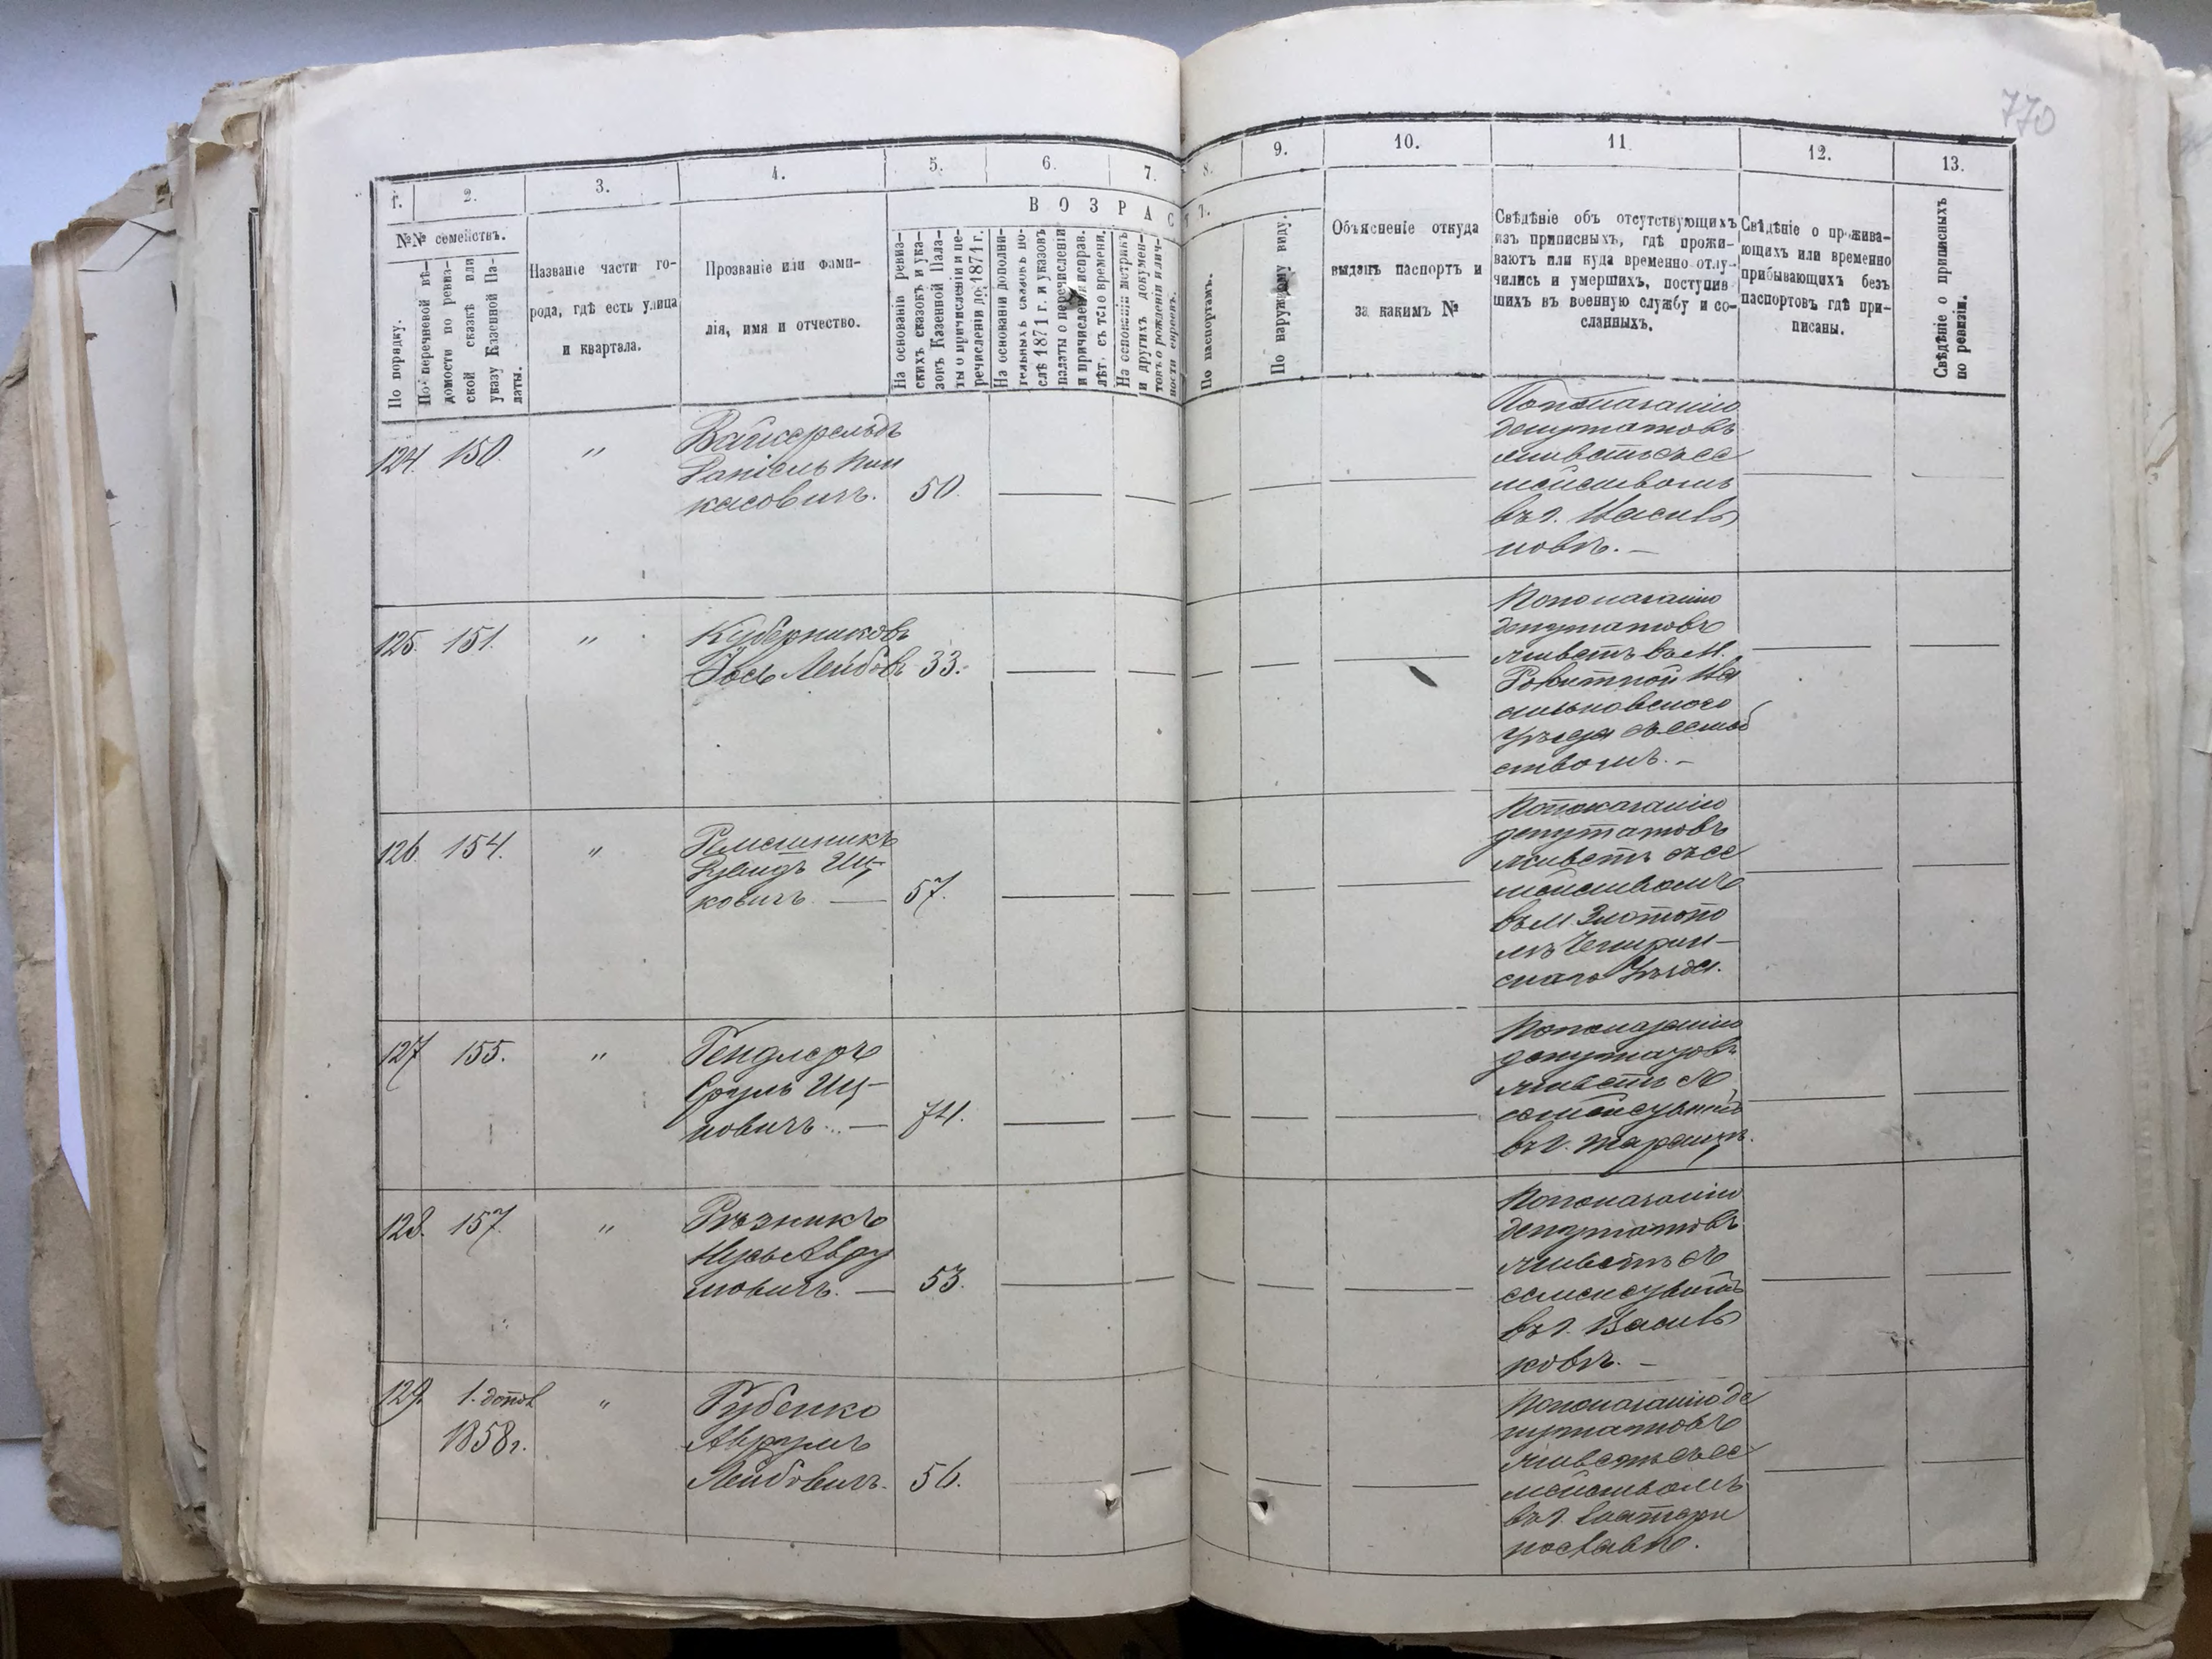 770
1.
2.
3.
4.
5.
6.
7.
8.
9.
10.
11.
12.
13.
№№ семействъ.
По порядку.
По перечневой вѣ-
домости по реви-
ской сказкѣ или
указу Казенной Па-
латы.
Названіе части го-
рода, гдѣ есть улица
и квартала.
Прозваніе или фами-
лія, имя и отчество.
ВОЗРАС
На основаніи ревиз-
скихъ сказокъ и ука-
зовъ Казенной Пала-
ты о причисленіи и пе-
речисленіи до 1871 г.
На основаніи дополни-
тельныхъ сказокъ по-
слѣ 1871 г. и указовъ
палаты о перечисленіи
и причисленіи исправ.
лѣт. съ того времени.
На основаніи метрикъ
и другихъ докумен-
товъ о рожденіи и лич-
ности евреевъ.
По паспортамъ.
По наружному виду.
Объясненіе откуда
выданъ паспортъ и
за какимъ №
Свѣдѣніе объ отсутствующихъ
изъ приписныхъ, гдѣ прожи-
ваютъ или куда временно отлу-
чились и умершихъ, поступив
шихъ въ военную службу и со-
сланныхъ.
Свѣдѣніе о прожива-
ющихъ или временно
прибывающихъ безъ
паспортовъ гдѣ при-
писаны.
Свѣдѣніе о приписныхъ
по ревизіи.
124. 150. "
Даніель Пин
касовичъ. 50.
Попоказанію
депутатовъ
живетъ съ се
мействомъ
въ г. Василь
ковѣ. —
125. 151. "
Куберниковъ
Іось Лейбовъ 33.
Попоказанію
депутатовъ
живетъ въ М.
Рокитной Ва
сильковскаго
Уѣзда съ семей
ствомъ. —
126. 154. "
Давидъ Иц-
ковичъ — 57.
Попоказанію
депутатовъ
живетъ съ се
мействомъ
въ М. Златопо
лѣ Чигирин-
скаго Уѣзда.
127 155. "
Гендлеръ
Сруль Иц-
ковичъ. — 74.
Попоказанію
депутатовъ
живетъ съ
семействомъ
въ г. Таращѣ.
128. 157. "
Рѣзникъ
Авру
мовичъ. — 53.
Попоказанію
депутатовъ
живетъ съ
семействомъ
въ г. Василь
ковѣ. —
129. 1. допол
1858 г. "
Рубенко
Аврумъ
Лейбовичъ. 56.
Попоказанію де
путатовъ
живетъ съ се
мействомъ
въ г. Екатери
нославѣ.